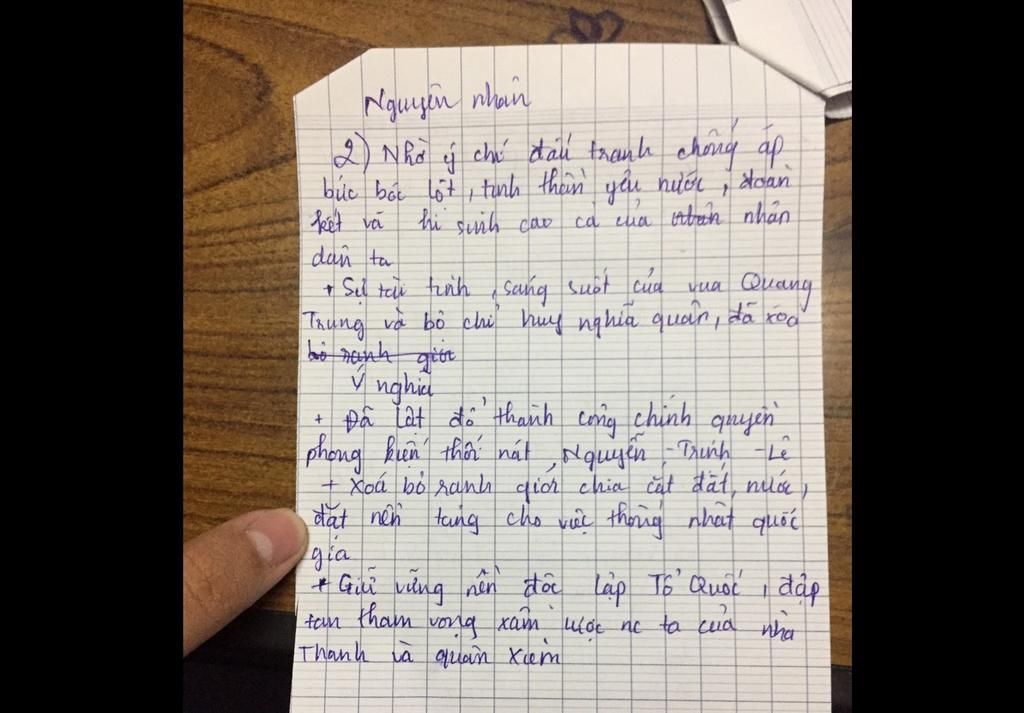 Nguyên nhân
2) Nhờ ý chí đấu tranh chống áp
bức bóc lột, tinh thần yêu nước, đoàn
kết và hi sinh cao cả của nhân
dân ta
+ Sự tài tình, sáng suốt của vua Quang
Trung và bộ chỉ huy nghĩa quân, đã xóa
bỏ ranh giới
Ý nghĩa
+ Đã lật đổ thành công chính quyền
phong kiến thối nát, Nguyễn - Trịnh - Lê
+ Xoá bỏ ranh giới chia cắt đất, nước,
đặt nền tảng cho việc thống nhất quốc
gia
+ Giữ vững nền độc lập Tổ Quốc, đập
tan tham vọng xâm lược nc ta của nhà
Thanh và quân Xiêm